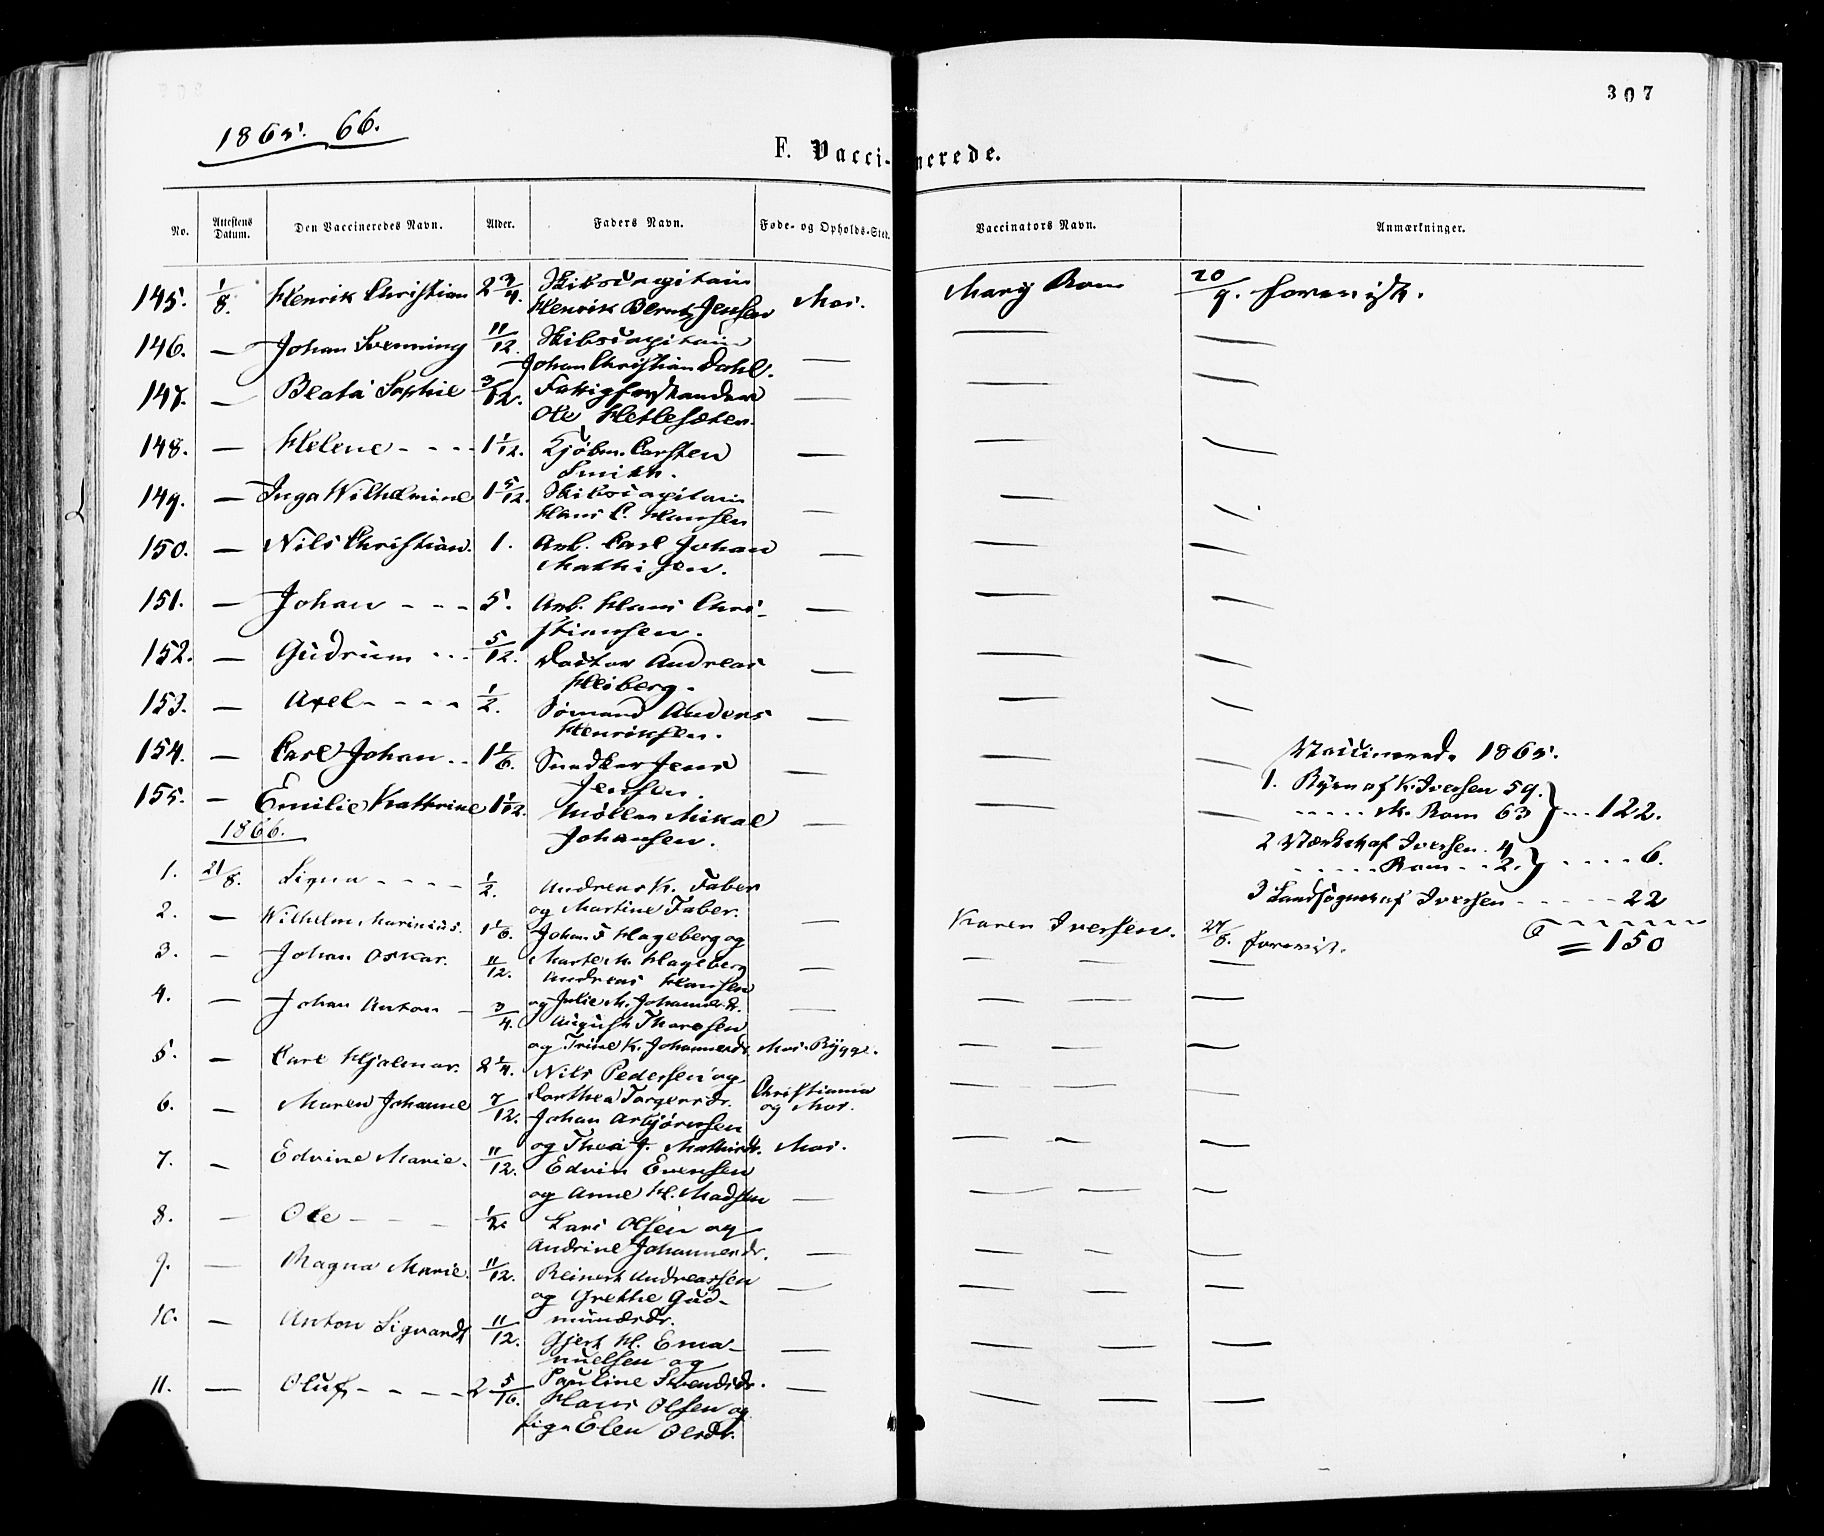 307
1865. 66.
F. Vaccinerede.
No. Attestens Datum. Den Vaccineredes Navn. Alder. Faders Navn. Føde- og Opholds-Sted. Vaccinators Navn. Anmærkninger.
145. 1/8. Henrik Christian 2 3/4. Skibscapitain Mos. Mary Rom 20/9. forevist.
Henrik Bernt Jensen
146. — Johan Svenning 11/12. Skibscapitain — — —
Johan Christian Dahl.
147. — Beata Sophie 3/12. Fattigforstander — — —
Ole Hetlesæter.
148. — Helene - - - - 1 1/12. Kjøbm. Carsten — — —
Smith.
149. — Inga Wilhelmine 1 5/12. Skibscapitain — — —
Hans C. Hansen
150. — Nils Christian. 1. Arb. Carl Johan — — —
Mathisen.
151. — Johan - - - 5. Arb. Hans Chri- — — —
stiansen.
152. — Gudrum - - - 5/12. Doctor Andreas — — —
Heiberg.
153. — Axel - - - - 1/2. Sømand Anders — — —
Henriksen.
154. — Carl Johan - - 1 1/6. Snedker Jens — — —
Jensen.
155. — Emilie Kathrine 1 1/12. Møller Mikal — — —
Johansen.
Vaccinerede 1865.
1. Byen af K. Iversen 59.
- - - - - M. Rom 63 } - - - 122.
2 Værket af Iversen. 4
- - - - - - Rom - - 2. } - - - - - 6.
3 Landsognet af Iversen - - - - - - 22
= 150
1866.
1. 21/8. Signa - - - - 1/2. Andreas K. Faber —
og Martine Faber.
2. — Wilhelm Marinius. 1 1/6. Johan F Hageberg og — Karen Iversen. 21/8. forevist.
Marte M. Hageberg
3. — Johan Oskar. 11/12. Andreas Hansen — — — —
og Julie M. Johannesdr.
4. — Johan Anton - 3/4. August Thoresen — — — —
og Trine K. Johannesdr.
5. — Carl Hjalmar. 2 1/4. Nils Pedersen og Mos. Rygge. — — —
Dorthea Torgersdr.
6. — Maren Johanne 7/12. Johan Asbjørnsen Christiania og Mos. — — —
og Thea J. Mathisdr.
7. — Edvine Marie. 11/12. Edvin Evensen Mos. — — —
og Anne H. Madsen
8. — Ole - - - 1/2. Lars Olsen og — — — —
Andrine Johannesdr.
9. — Magna Marie. 11/12. Reinert Andreassen — — — —
og Grethe Gud-
mundsdr.
10. — Anton Sigvardt 11/12. Gjert H. Ema- — — — —
nuelsen og
Pauline Svendsdr.
11. — Oluf - - - - 2 5/16. Hans Olsen og — — — —
Pige Elen Olsdr.